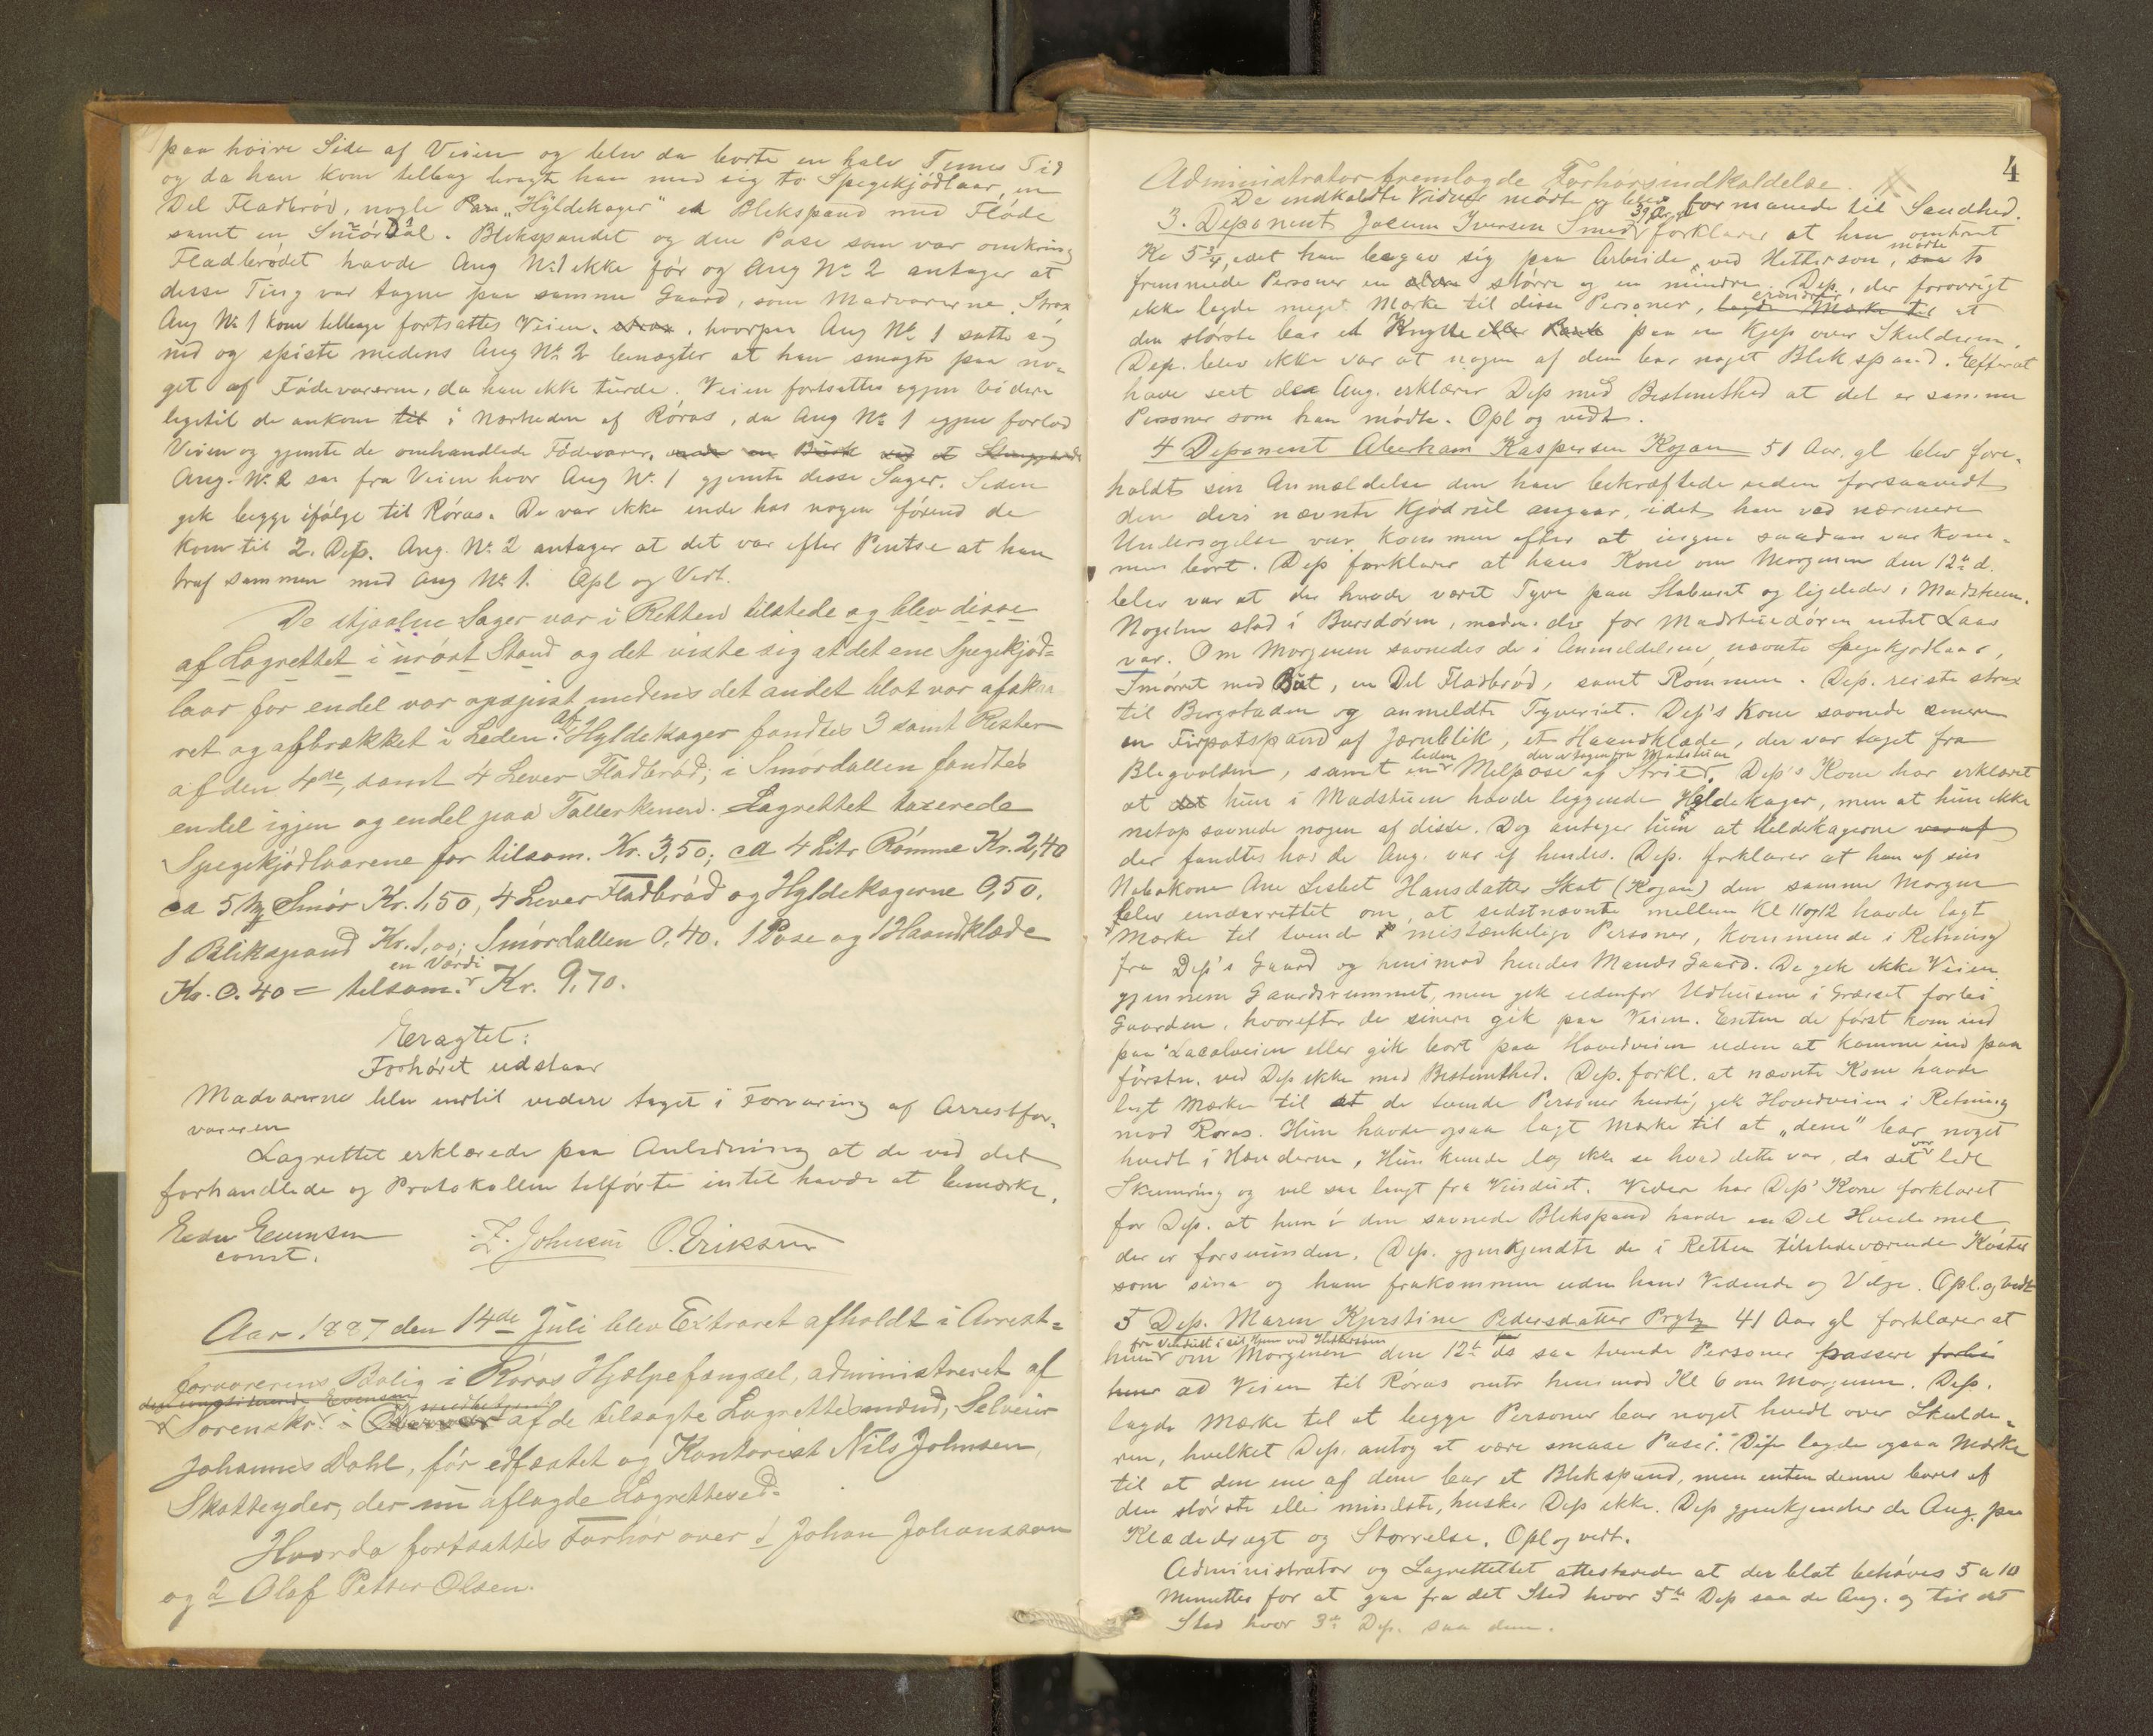 paa høire Side af Veien og blev da borte en halv Times Tid
og da han kom tilbag bragte han med sig to Spegekjødlaar, en
Del Fladbrød, nogle Par „Hyldekager" et Blekspand med Fløde
samt en Smørdal. Blekspandet og den Pose som var omkring
Fladbrødet havde Ang No 1 ikke før og Ang No 2 antager at
disse Ting var tagne paa samme Gaard, som Madvarerne. Strax
Ang No 1 kom tilbage fortsattes Veien, strax, hvorpaa Ang No 1 satte sig
ned og spiste medens Ang No 2 benægter at han smagte paa no-
get af Fødevarerne, da han ikke turde. Veien fortsattes igjen videre
ligetil de ankom til i Nærheden af Røros, da Ang No 1 igjen forlod
Veien og gjemte de omhandlede Fødevarer, under en Busk ved et
Ang. No 2 saa fra Veien hvor Ang No 1 gjemte disse Sager. Siden
gik begge ifølge til Røros. De var ikke inde hos nogen førend de
kom til 2. Dep. Ang. No 2 antager at det var efter Pintse at han
traf sammen med Ang No 1. Opl og Vedt.
De stjaalne Sager var i Retten tilstede og blev disse
af Lagrettet i urørt Stand og det viste sig at det ene Spegekjød-
laar for endel var opspist medens det andet blot var afskaa-
ret og afbrækket i Leden. Af Hyldekager fandtes 3 samt Rester
af den 4de, samt 4 Lever Fladbrød; i Smørdallen fandtes
endel igjen og endel paa Tallerkenen. Lagrettet taxerede
Spegekjødlaarene for tilsam. Kr. 3,50; ca 4 Litr Rømme Kr. 2,40
ca 5 Mg Smør Kr. 1,50, 4 Lever Fladbrød og Hyldekagerne 0,50.
1 Blikspand Kr. 1,00; Smørdallen 0,40. 1 Pose og 1 Haandklæde
en Værdi
Kr. 0.40 = tilsam. Kr. 9,70.
Eragtet:
Forhøret udstaar
Madvarerne blev indtil videre taget i Forvaring af Arrestfor-
vareren
Lagrettet erklærede paa Anledning at de ved det
forhandlede og Protokollen tilførte intet havde at bemærke.
Edv Evensen
const.
Z. Johnsen O. Eriksen
Aar 1887 den 14de Juli blev Extraret afholdt i Arrest-
forvarerens Bolig i Røros Hjælpefængsel, administreret af
den constituerede Evensen
Sorenskr. i Overvær af de tilsagte Lagrettesmænd, Selveier
Johannes Dahl, før edfæstet og Kontorist Nils Johnsen
Skatteyder, der nu aflagde Lagretteed.
Hvorda fortsattes Forhør over 1 Johan Johansson
og 2 Olaf Petter Olsen.
4
Administrator fremlagde Forhørsindkaldelse.
De indkaldte Vidner mødte og blev formanede til Sandhed.
39 Aar gl
3. Deponent Jocum Iversen Smed forklarer at han omtrent
mødte
Kl 5 3/4, idet han begav sig paa Arbeide, ved Hitterson, saa to
fremmede Personer en større og en mindre. Dep., der forøvrigt
erindrer
ikke lagde meget Mærke til disse Personer, lagde Mærke til at
den største bar et Knytte eller paa en Kjep over Skulderen.
Dep. blev ikke var at nogen af dem bar noget Blekspand. Efterat
have seet de Ang. erklærer Dep med Bestemthed at det er samme
Personer som han mødte. Opl og vedt.
4 Deponent Abraham Kaspersen Kojan 51 Aar gl blev fore-
holdt sin Anmeldelse den han bekræftede uden forsaavidt
den deri nævnte Kjødrul angaar, idet han ved nærmere
Undersøgelse var kommen efter at ingen saadan var kom-
men bort. Dep forklarer at hans Kone om Morgenen den 12te d.
blev var at der havde været Tyve paa Staburet og ligeledes i Madstuen.
Nøgelen stod i Bursdøren, meden der for Madstuedøren intet Laas
var. Om Morgenen savnedes de i Anmeldelsen nævnte Spegekjødlaar,
Smørret med Büt, en Del Fladbrød, samt Rømmen. Dep. reiste strax
til Bergstaden og anmeldte Tyveriet. Dep's Kone savnede senere
en Firpotspand af Jærnblik, et Haandklæde, der var taget fra
liden der er tagen fra Madstuen
Blegvolden, samt en Melpose af Strie. Dep's Kone har erklæret
at det hun i Madstuen havde liggende Hyldekager, men at hun ikke
netop savnede nogen af disse. Dog antager hun at Heldekagerne
der fandtes hos de Ang. var af hendes. Dep. forklarer at han af sin
Nabokone Ane Lisbet Hansdatter Skot (Kojan) den samme Morgen
blev underrettet om, at sidstnævnte mellem Kl 11 og 12 havde lagt
Mærke til tvende mistænkelige Personer, kommende i Retning
fra Dep's Gaard og henimod hendes Mands Gaard. De gik ikke Veien
gjennem Gaardsrummet, men gik udenfor Udhusene i Græsset forbi
Gaarden, hvorefter de senere gik paa Veien. Enten de først kom ind
paa Localveien eller gik bort paa Hovedveien uden at komme ind paa
første, ved Dep ikke med Bestemthed. Dep. forkl. at nævnte Kone havde
lagt Mærke til at de tvende Personer hurtig gik Hovedveien i Retning
mod Røros. Hun havde ogsaa lagt Mærke til at „dem" bar noget
var
hvidt i Hænderne, Hun kunde dog ikke se hvad dette var, da det lidt
Skumring og vel saa langt fra Vinduet. Videre har Dep' Kone forklaret
for Dep. at hun i den savnede Blekspand havde en Del Hvedemel,
der er forsvunden. Dep. gjenkjendte de i Retten tilstedeværende Koster
som sine og ham frakommen uden hans Vidende og Vilje. Opl. og vedt
5 Dep. Maren Kjerstine Pedersdatter Prytz 41 Aar gl forklarer at
fra Vinduet i sit Hjem ved Hittersøen
hun om Morgenen den 12te ds saa tvende Personer passere forbi
ad Veien til Røros omtr henimod Kl 6 om Morgenen. Dep.
lagde Mærke til at begge Personer bar noget hvidt over Skulde-
ren, hvilket Dep. antog at være smaae Poser. Dep lagde ogsaa Mærke
til at den ene af dem bar et Blekspand, men enten denne bares af
den største eller mindste, husker Dep ikke. Dep gjenkjender de Ang. paa
Klædedragt og Størrelse. Opl og vedt.
Administrator og Lagrettet attesterede at der blot behøves 5 a 10
Minutter for at gaa fra det Sted hvor 5te Dep saa de Ang. og til det
Sted hvor 3die Dep. saa dem.